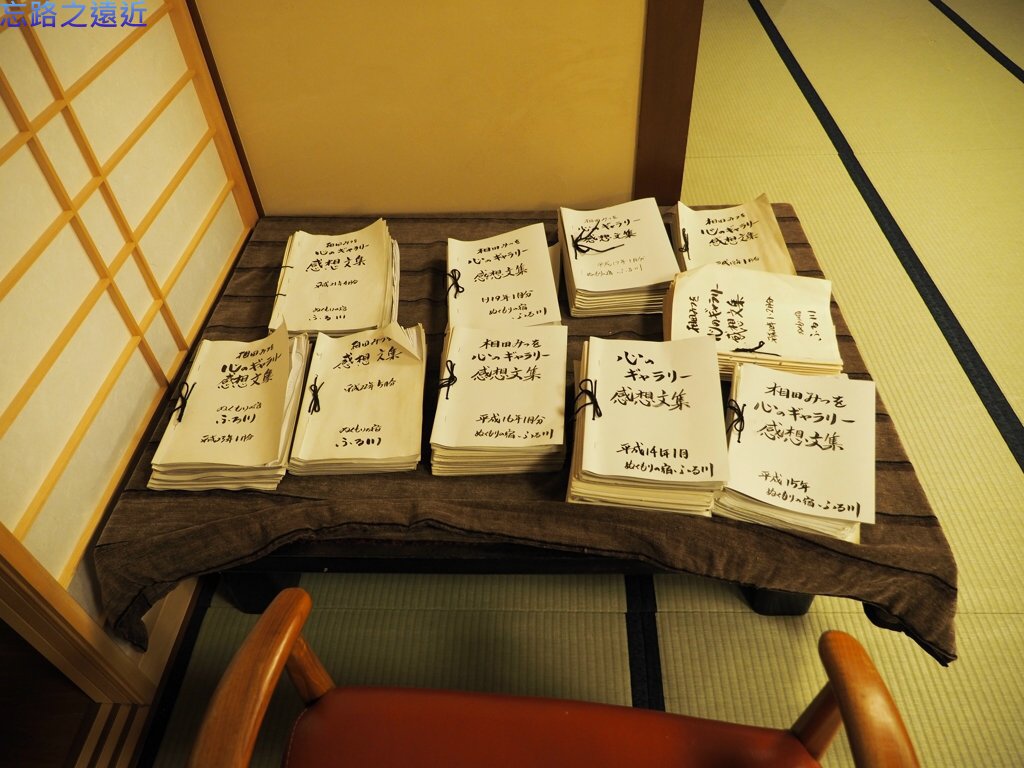 忘路之遠近
相田みつを
心のギャラリー
感想文集
平成21年4月分
ぬくもりの宿
ふる川
相田みつを
心のギャラリー
感想文集
H19年1月分
ぬくもりの宿 ふる川
相田みつを
心のギャラリー
感想文集
平成17年1月分
ぬくもりの宿 ふる川
相田みつを
心のギャラリー
感想文集
相田みつを
心のギャラリー
感想文集
ぬくもりの宿
ふる川
相田みつを
心のギャラリー
感想文集
ぬくもりの宿
ふる川
平成23年1月分
相田みつを
感想文集
平成22年5月分
ぬくもりの宿
ふる川
相田みつを
心のギャラリー
感想文集
平成16年1月分
ぬくもりの宿 ふる川
心の
ギャラリー
感想文集
平成14年1月
ぬくもりの宿 ふる川
相田みつを
心のギャラリー
感想文集
平成15年
ぬくもりの宿 ふる川